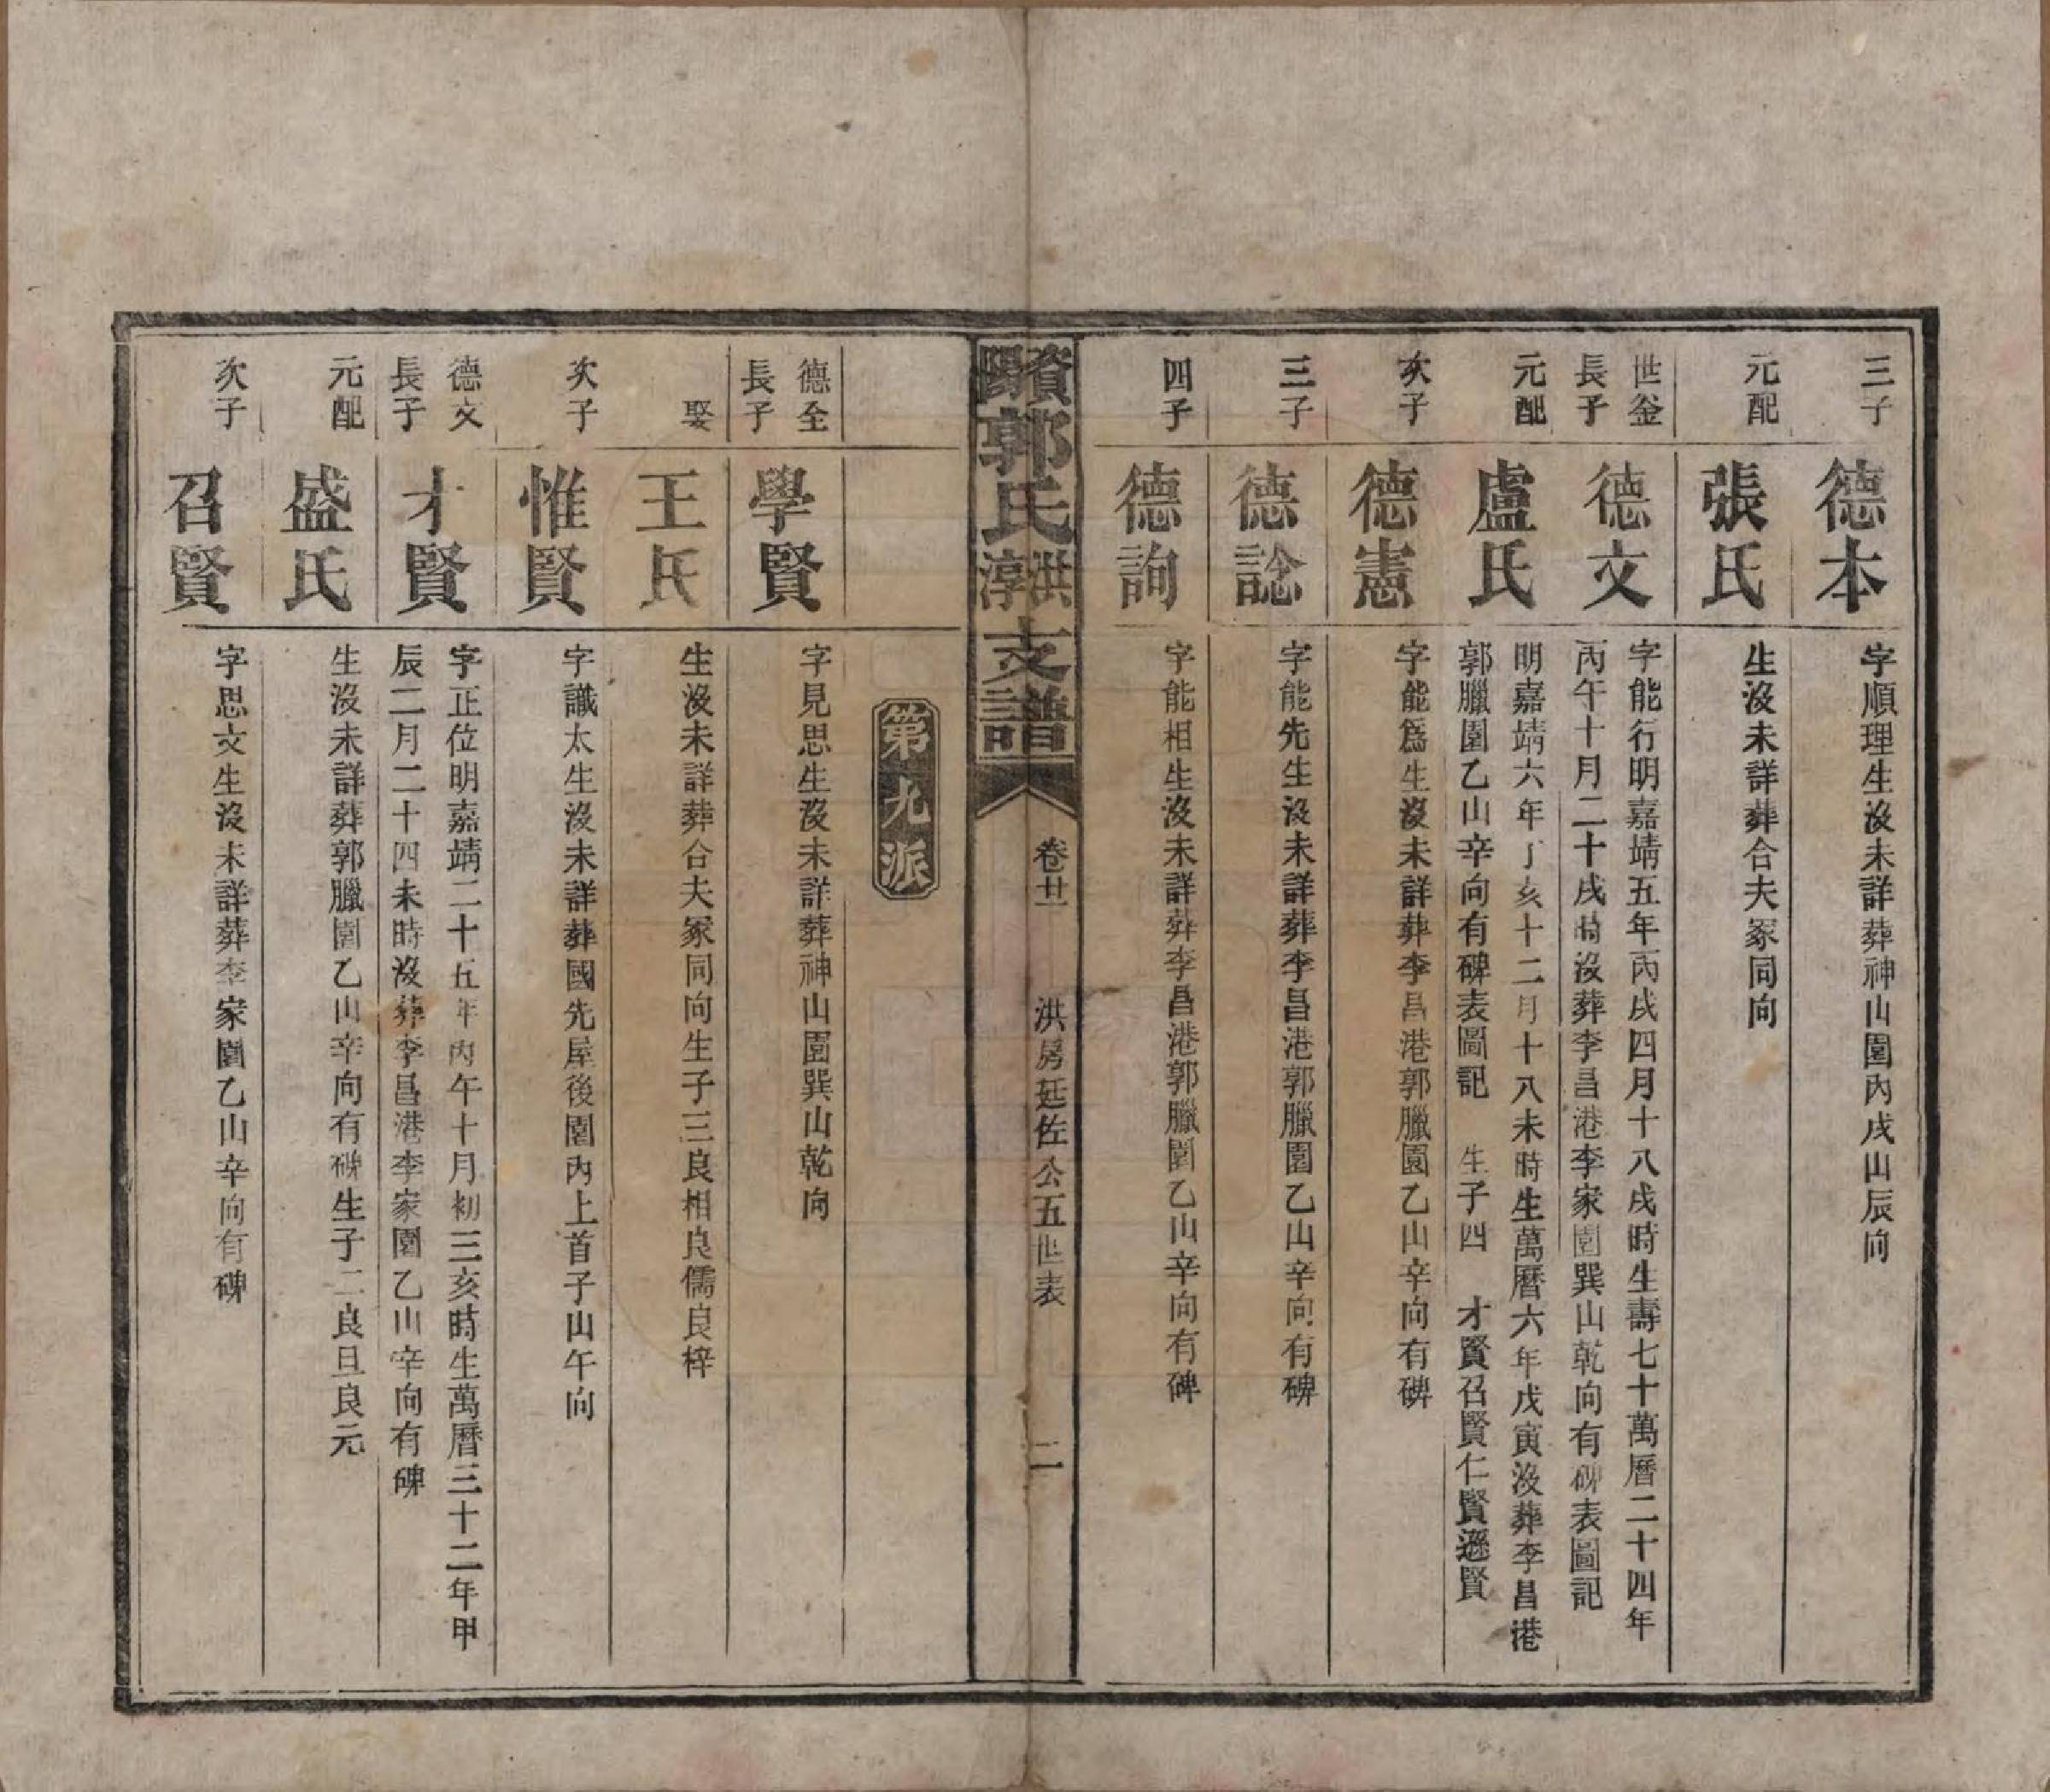 三子
德本
字順理生沒未詳葬神山園內戌山辰向
元配
張氏
生沒未詳葬合夫冢同向
世釡
長子
德文
字能行明嘉靖五年丙戌四月十八戌時生壽七十萬曆二十四年
丙午十月二十戌時沒葬李昌港李家園巽山乾向有碑表圖記
元配
盧氏
明嘉靖六年丁亥十二月十八未時生萬曆六年戊寅沒葬李昌港
郭臘園乙山辛向有碑表圖記 生子四 才賢召賢仁賢遜賢
次子
德憲
字能爲生沒未詳葬李昌港郭臘園乙山辛向有碑
三子
德諗
字能先生沒未詳葬李昌港郭臘園乙山辛向有碑
四子
德詢
字能相生沒未詳葬李昌港郭臘園乙山辛向有碑
資陽郭氏洪淳支譜
卷廿
洪房廷佐公五世表
二
第九派
德全
長子
學賢
字見思生沒未詳葬神山園巽山乾向
娶
王氏
生沒未詳葬合夫冢同向生子三良相良儒良梓
次子
惟賢
字識太生沒未詳葬國先屋後園內上首子山午向
德文
長子
才賢
字正位明嘉靖二十五年丙午十月初三亥時生萬曆三十二年甲
辰二月二十四未時沒葬李昌港李家園乙山辛向有碑
元配
盛氏
生沒未詳葬郭臘園乙山辛向有碑生子二良旦良元
次子
召賢
字思文生沒未詳葬李家園乙山辛向有碑